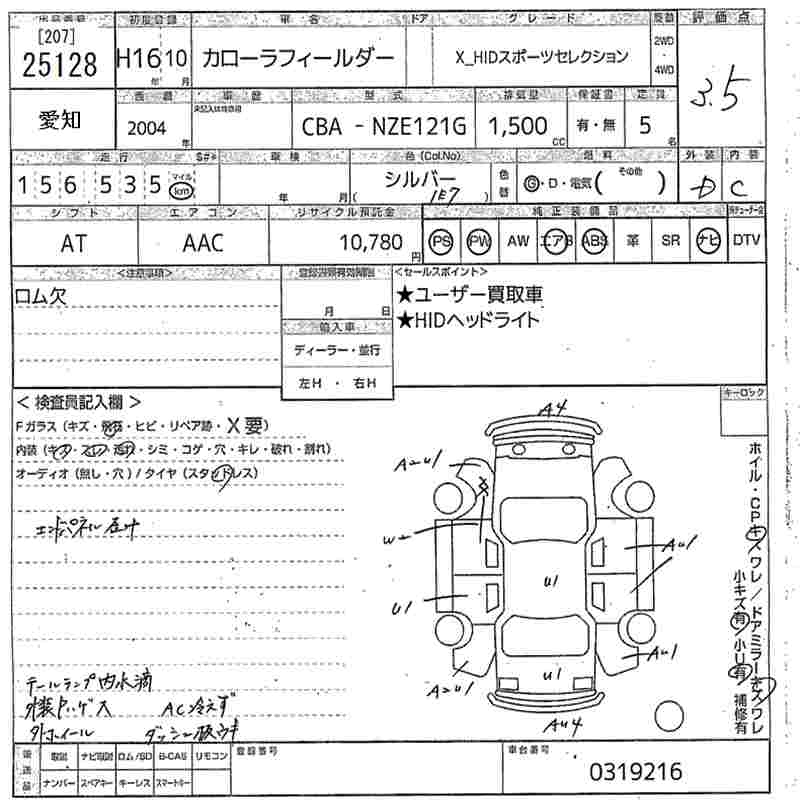 出品番号 初度登録 車名 ドア グレード 駆動 評価点
[207]
25128 H16 10 カローラフィールダー X_HIDスポーツセレクション 2WD・4WD 3.5
年 月
愛知 西暦 車歴 型式 排気量 保証書 定員
2004 年 CBA - NZE121G 1,500 cc 有・無 5 名
走行 S#* 車検 色(Col.No) 燃料 外装 内装
156535 マイル km 年 月 シルバー 1E7 色替 G・D・電気( その他 ) D C
シフト エアコン リサイクル預託金 純正装備品
AT AAC 10,780 円 PS PW AW エアB ABS 革 SR ナビ DTV
<注意事項> <セールスポイント>
ロム欠 月 日 ★ユーザー買取車
輸入車 ★HIDヘッドライト
ディーラー・並行
左H ・ 右H
キーロック
< 検査員記入欄 >
Fガラス (キズ・飛石・ヒビ・リペア跡・X要)
内装 (キズ・スレ・汚れ・シミ・コゲ・穴・キレ・破れ・割れ)
オーディオ (無し・穴) / タイヤ (スタッドレス)
A4
A2U1
X
W
AU1
U1
U1
U1
AU1
A2U1
AU4
ホイル・CPキズワレ/ドアミラーキズワレ
小キズ有/小U有 補修有
エンドパネル 歪み
テールランプ内水滴
AC冷えず
外ホイール
登録番号 車台番号
取説 ナビ取説 ロム/SD B-CAS リモコン
ナンバー スペアキー キーレス スマートキー
0319216